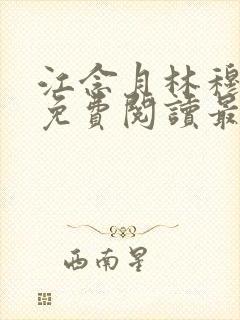 江念月林穆
免費閱讀最
西南星